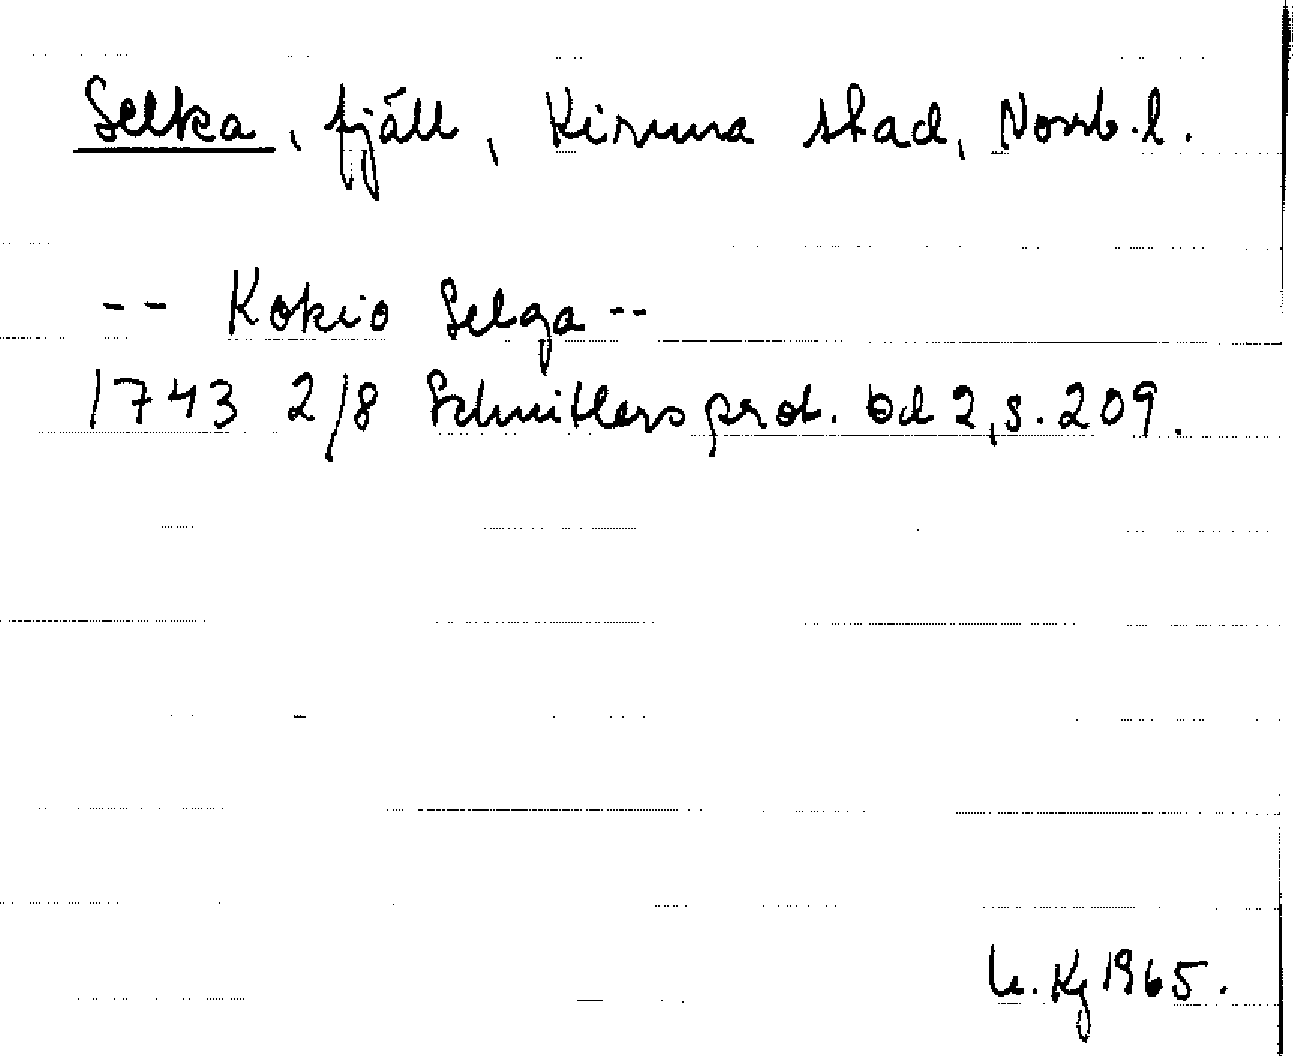 Selka, fjäll, Kiruna stad, Norrb.l.
-- Kokio Selga --
1743 2/8 Schnitlers prot. bd 2, s. 209.
U. Kj 1965.